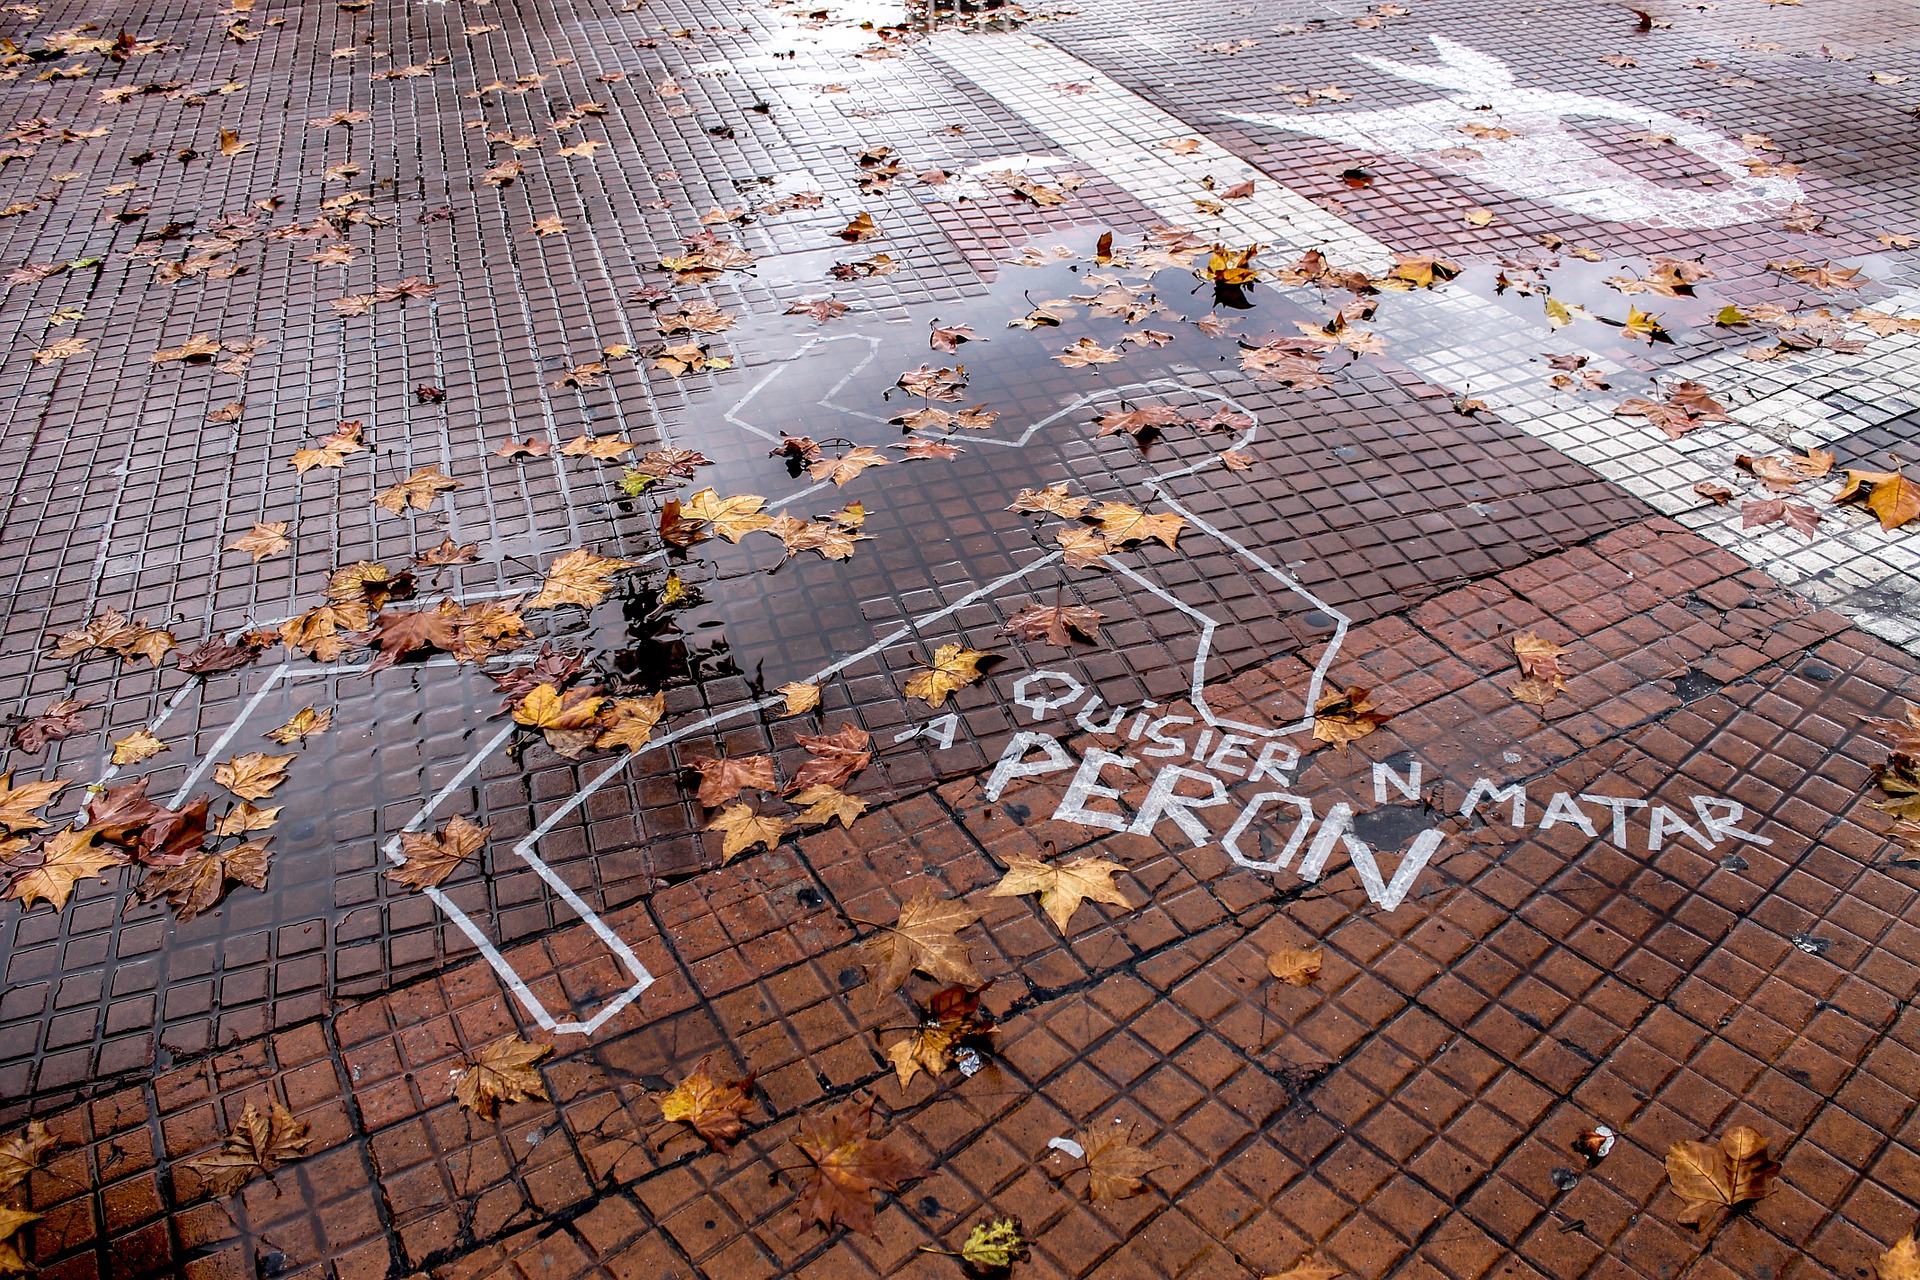 A QUÍSIERN MATAR
PERON